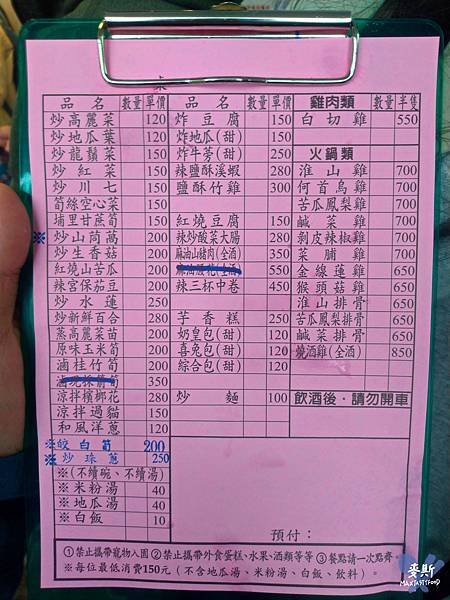 品名 數量 單價
炒高麗菜 120
炒地瓜葉 120
炒龍鬚菜 150
炒紅菜 150
炒川七 150
筍絲空心菜 150
埔里甘蔗筍 150
※炒山茼萵 200
炒生香菇 200
紅燒山苦瓜 200
辣宮保茄豆 200
炒水蓮 250
炒新鮮百合 280
蒸高麗菜苗 200
原味玉米筍 200
滷桂竹筍 200
滷現採箭筍 350
涼拌檳榔花 280
涼拌過貓 150
和風洋蔥 120
※皎白筍 200
※炒珠蔥 250
※(不續碗、不續湯)
※米粉湯 40
※地瓜湯 40
※白飯 10
品名 數量 單價
炸豆腐 150
炸地瓜(甜) 150
炸牛蒡(甜) 250
辣鹽酥溪蝦 280
鹽酥竹雞 300
紅燒豆腐 150
辣炒酸菜大腸 280
麻油山豬肉(全酒) 350
麻油腰花(全酒)
辣三杯中卷 450
芋香糕 280
奶皇包(甜) 120
喜兔包(甜) 120
綜合包(甜) 120
炒麵 100
雞肉類 數量 半隻
白切雞 550
火鍋類
淮山雞 700
何首烏雞 700
苦瓜鳳梨雞 700
鹹菜雞 700
剝皮辣椒雞 700
菜脯雞 700
金線蓮雞 650
猴頭菇雞 650
淮山排骨 650
苦瓜鳳梨排骨 650
鹹菜排骨 650
燒酒雞(全酒) 850
飲酒後,請勿開車
預付：
①禁止攜帶寵物入園②禁止攜帶外食蛋糕、水果、酒類等等③餐點請一次點齊。
※每位最低消費150元(不含地瓜湯、米粉湯、白飯、飲料)。
麥斯